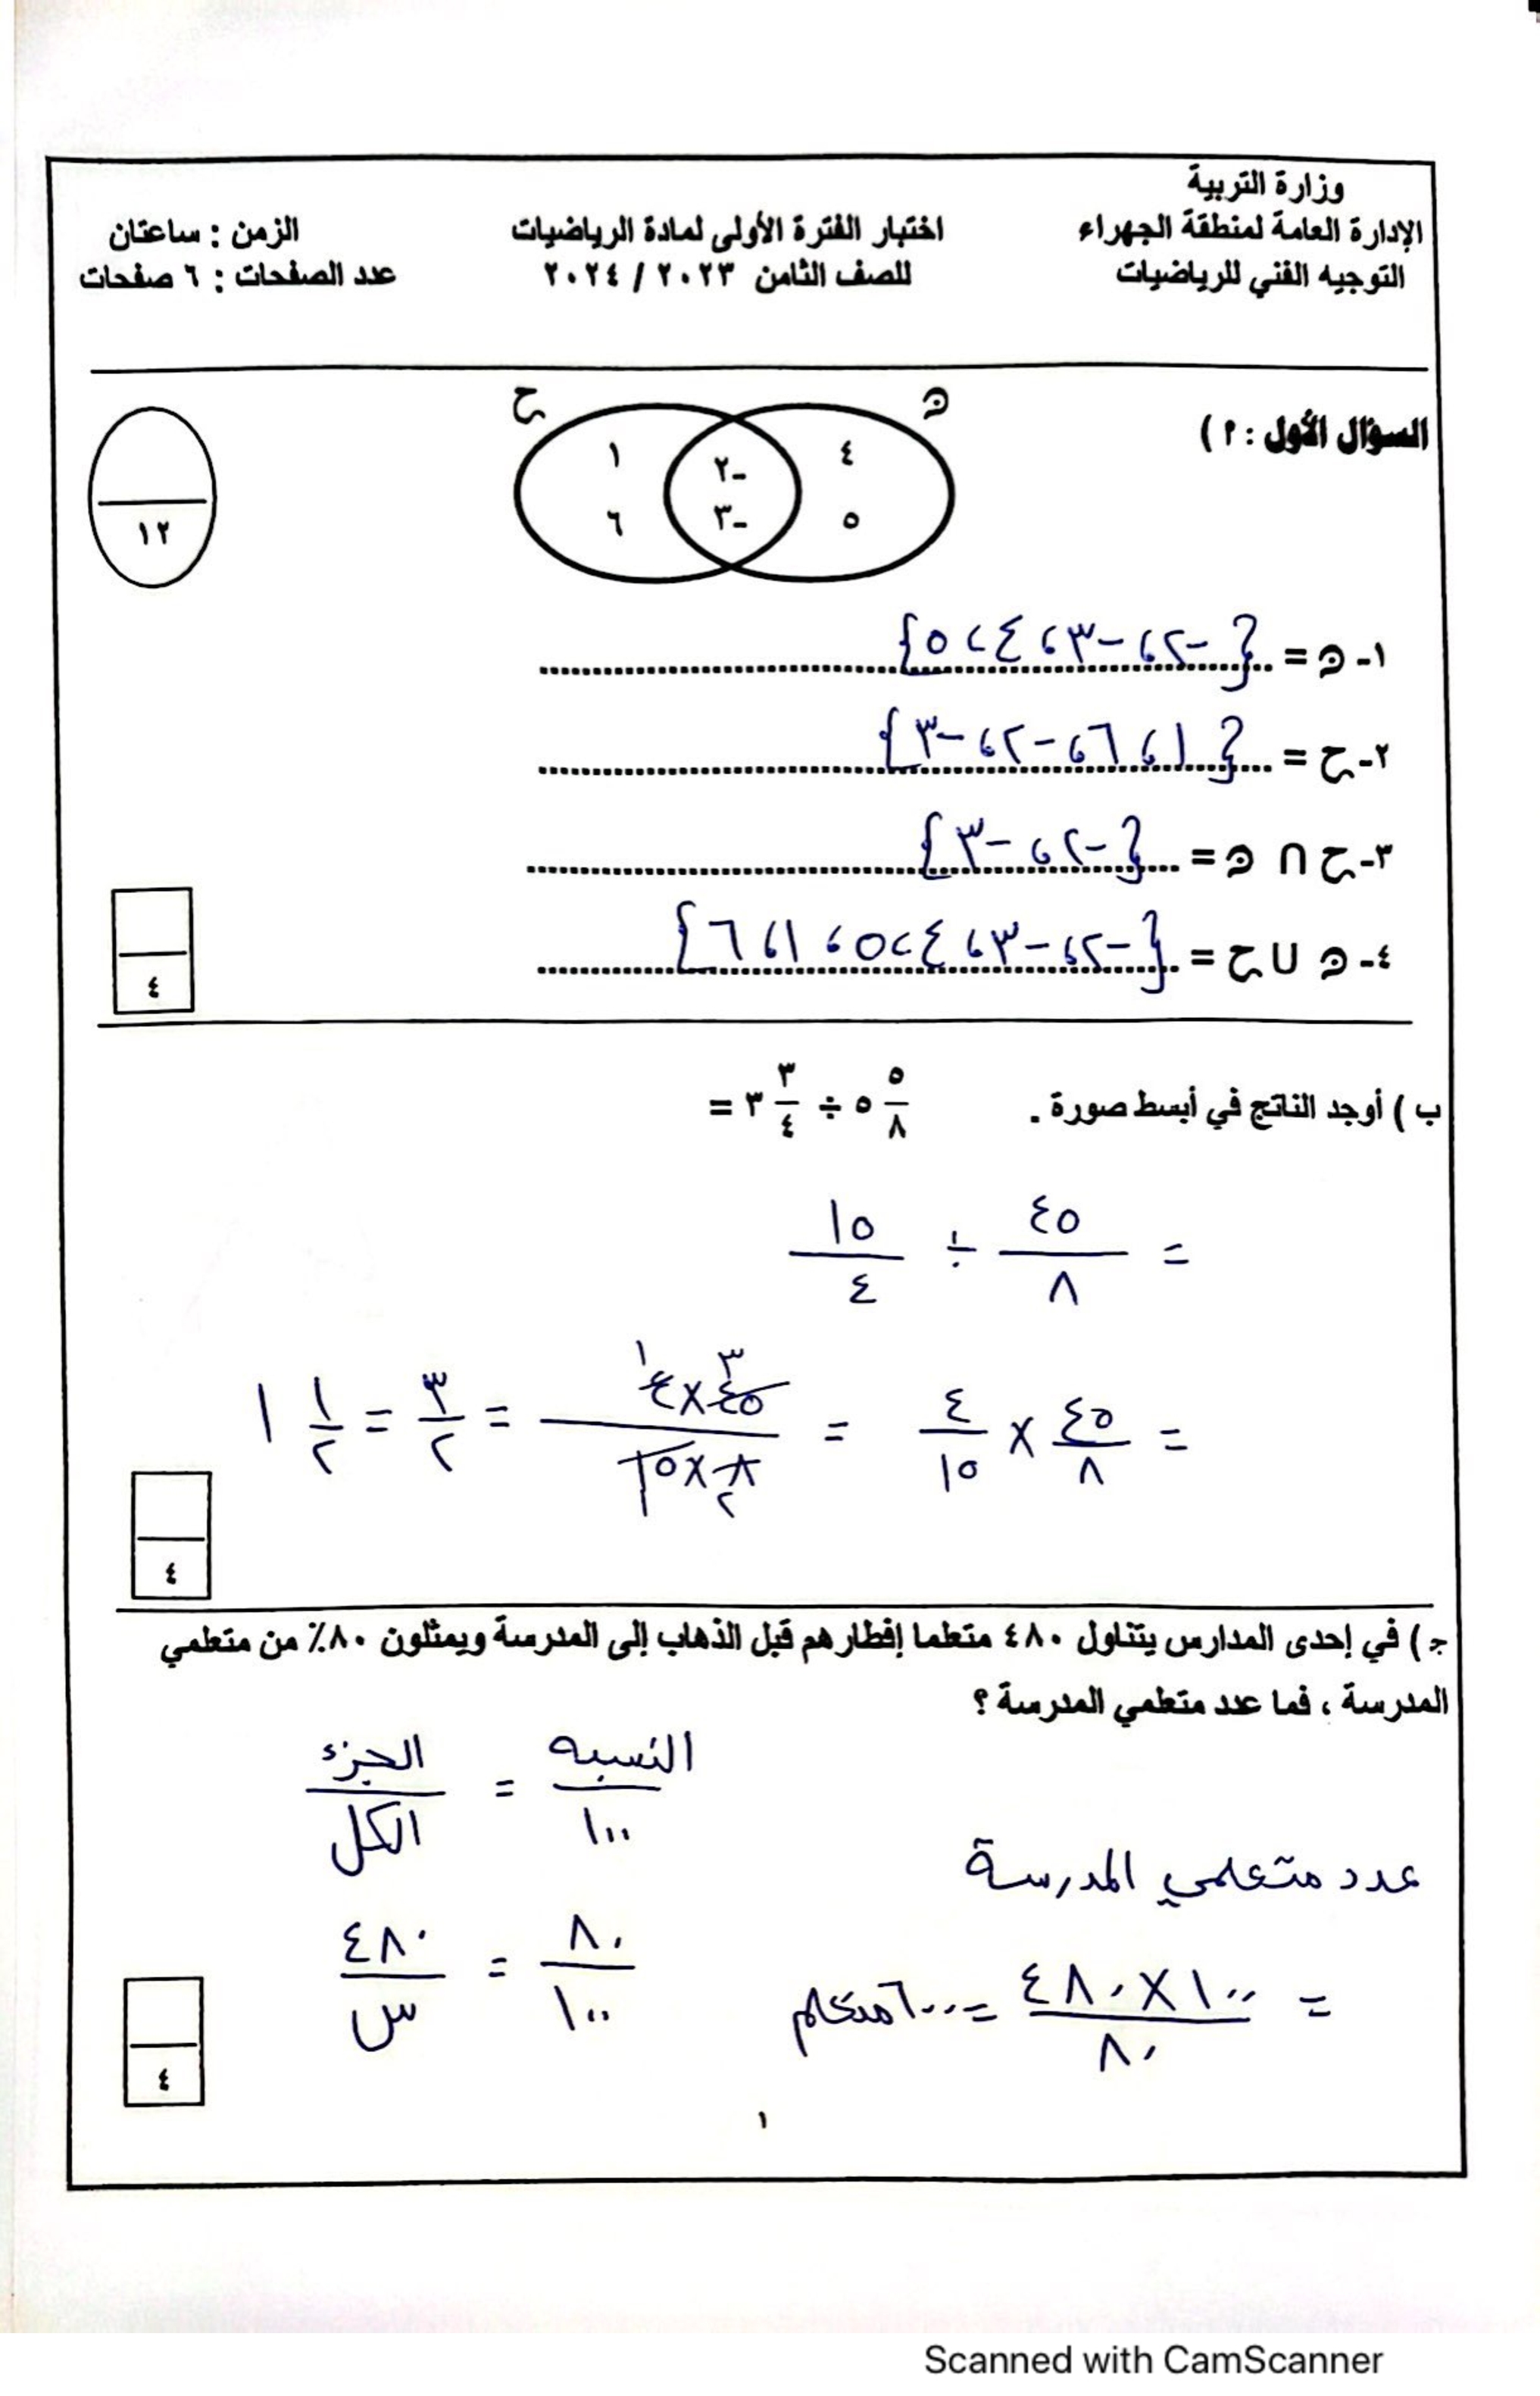 وزارة التربية
الإدارة العامة لمنطقة الجهراء
التوجيه الفني للرياضيات
اختبار الفترة الأولى لمادة الرياضيات
للصف الثامن ٢٠٢٣ / ٢٠٢٤
الزمن : ساعتان
عدد الصفحات : ٦ صفحات
السؤال الأول : ٢ )
ح
١
٦
-٢
-٣
٤
٥
١٢
١- = {-٢، -٣، ٤، ٥}
٢- ح = {١، ٦، -٢، -٣}
٣- ح ∩ = {-٢، -٣}
٤- ∪ ح = {-٢، -٣، ٤، ٥، ١، ٦}
٤
ب ) أوجد الناتج في أبسط صورة . ٥ ٥/٨ ÷ ٣ ٣/٤ =
= ٤٥/٨ ÷ ١٥/٤
= ٤٥/٨ × ٤/١٥ = ٤٥×٤/٨×١٥ = ٣/٢ = ١ ١/٢
٤
ج ) في إحدى المدارس يتناول ٤٨٠ متعلما إفطارهم قبل الذهاب إلى المدرسة ويمثلون ٨٠٪ من متعلمي
المدرسة ، فما عدد متعلمي المدرسة ؟
النسبه/١٠٠ = الجزء/الكل
عدد متعلمي المدرسة
٨٠/١٠٠ = ٤٨٠/س
= ٤٨٠×١٠٠/٨٠ = ٦٠٠ متعلم
٤
١
Scanned with CamScanner